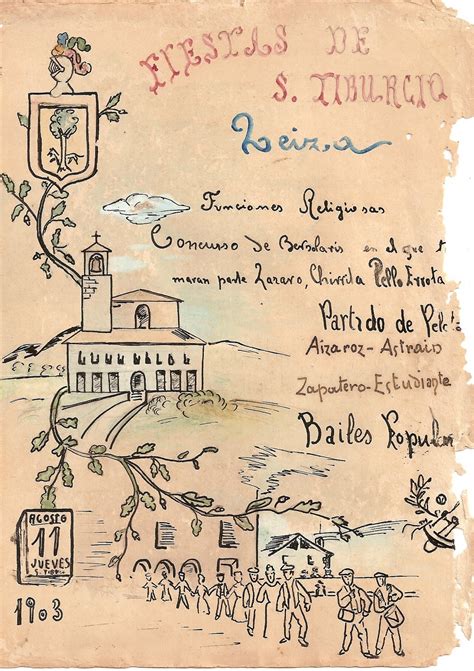 FIESTAS DE
S. TIBURCIO
Leiza
Funciones Religiosas
Concurso de Bersolaris en el que t
maran parte Lazaro, Chirrita Pello Errota
Partido de Pelota
Aizaroz - Astrain
Zapatero - Estudiante
Bailes Popular
AGOSTO
11
JUEVES
1903